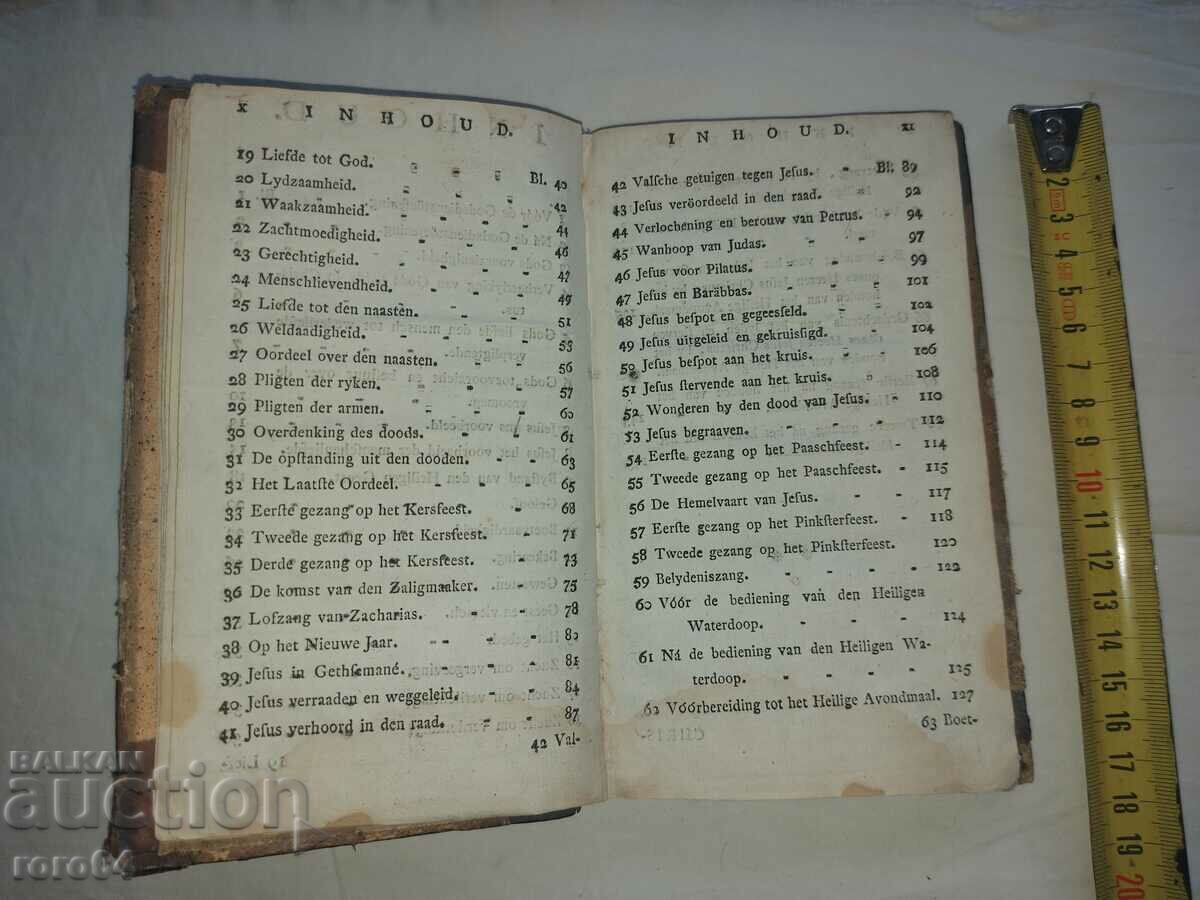 x INHOUD.
19 Liefde tot God. - - - Bl. 40
20 Lydzaamheid. - - - 42
21 Waakzaamheid. - - - 44
22 Zachtmoedigheid. - - - 46
23 Gerechtigheid. - - - 47
24 Menschlievendheid. - - - 49
25 Liefde tot den naasten. - - - 51
26 Weldaadigheid. - - - 53
27 Oordeel over den naasten. - - 56
28 Pligten der ryken. - - - 57
29 Pligten der armen. - - - 60
30 Overdenking des doods. - - - 61
31 De opstanding uit den dooden. - - 63
32 Het Laatſte Oordeel. - - - 65
33 Eerſte gezang op het Kersfeest. - 68
34 Tweede gezang op het Kersfeest. - - 71
35 Derde gezang op het Kersfeest. - - 73
36 De komst van den Zaligmaaker. - - 75
37 Lofzang van Zacharias. - - - 78
38 Op het Nieuwe Jaar. - - - 80
39 Jeſus in Gethſemané. - - - 81
40 Jeſus verraaden en weggeleid. - - 84
41 Jeſus verhoord in den raad. - - 87
42 Val-
INHOUD. xi
42 Valſche getuigen tegen Jeſus. - Bl. 89
43 Jeſus veröordeeld in den raad. - 92
44 Verlochening en berouw van Petrus. - 94
45 Wanhoop van Judas. - - - 97
46 Jeſus voor Pilatus. - - - 99
47 Jeſus en Baräbbas. - - - 101
48 Jeſus beſpot en gegeesſeld. - - 102
49 Jeſus uitgeleid en gekruisſigd. - - 104
50 Jeſus beſpot aan het kruis. - - 106
51 Jeſus ſtervende aan het kruis. - - 108
52 Wonderen by den dood van Jeſus. - 110
53 Jeſus begraaven. - - - 112
54 Eerſte gezang op het Paaschfeest. - 114
55 Tweede gezang op het Paaschfeest. - 115
56 De Hemelvaart van Jeſus. - - 117
57 Eerſte gezang op het Pinkſterfeest. - 118
58 Tweede gezang op het Pinkſterfeest. - 120
59 Belydeniszang. - - - - 122
60 Vóór de bediening van den Heiligen
Waterdoop. - - - - 124
61 Ná de bediening van den Heiligen Wa-
terdoop. - - - - 125
62 Vóórbereiding tot het Heilige Avondmaal. 127
63 Boet-
2 3 4 5 6 7 8 9 10 11 12 13 14 15 16 17 18 19 20
BALKAN
auction
roro64